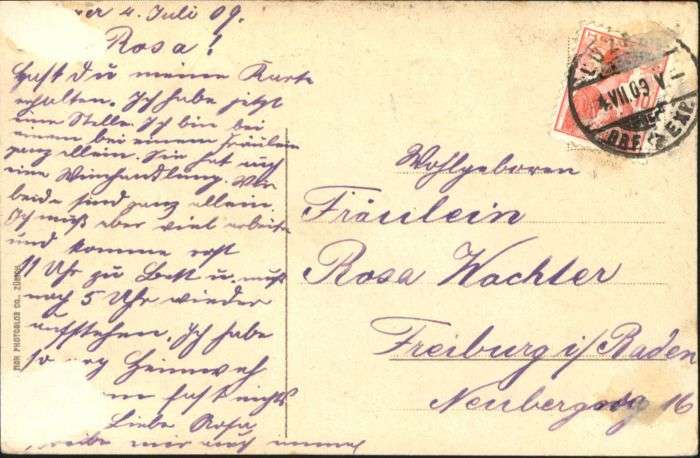 4. Juli 09.
Rosa!
Hast du meine Karte
erhalten. Ich habe jetzt
eine Stelle. Ich bin bei
einem bei einem Fräulein
ganz allein. Sie hat auch
eine Weinhandlung. Wir
beide sind ganz allein.
Ich muß aber viel arbeite
und komme erst
11 Uhr zu Bett u. muß
nach 5 Uhr wieder
aufstehen. Ich habe
so arg Heimweh
fast nichts
Liebe Rosa
mir auch einmal
Wohlgeboren
Fräulein
Rosa Wachter
Freiburg i/Baden
Neubergweg 16
PHOTOGLOB CO., ZÜRICH
LUZERN
4.VII.09 V
BRIEF EXP.